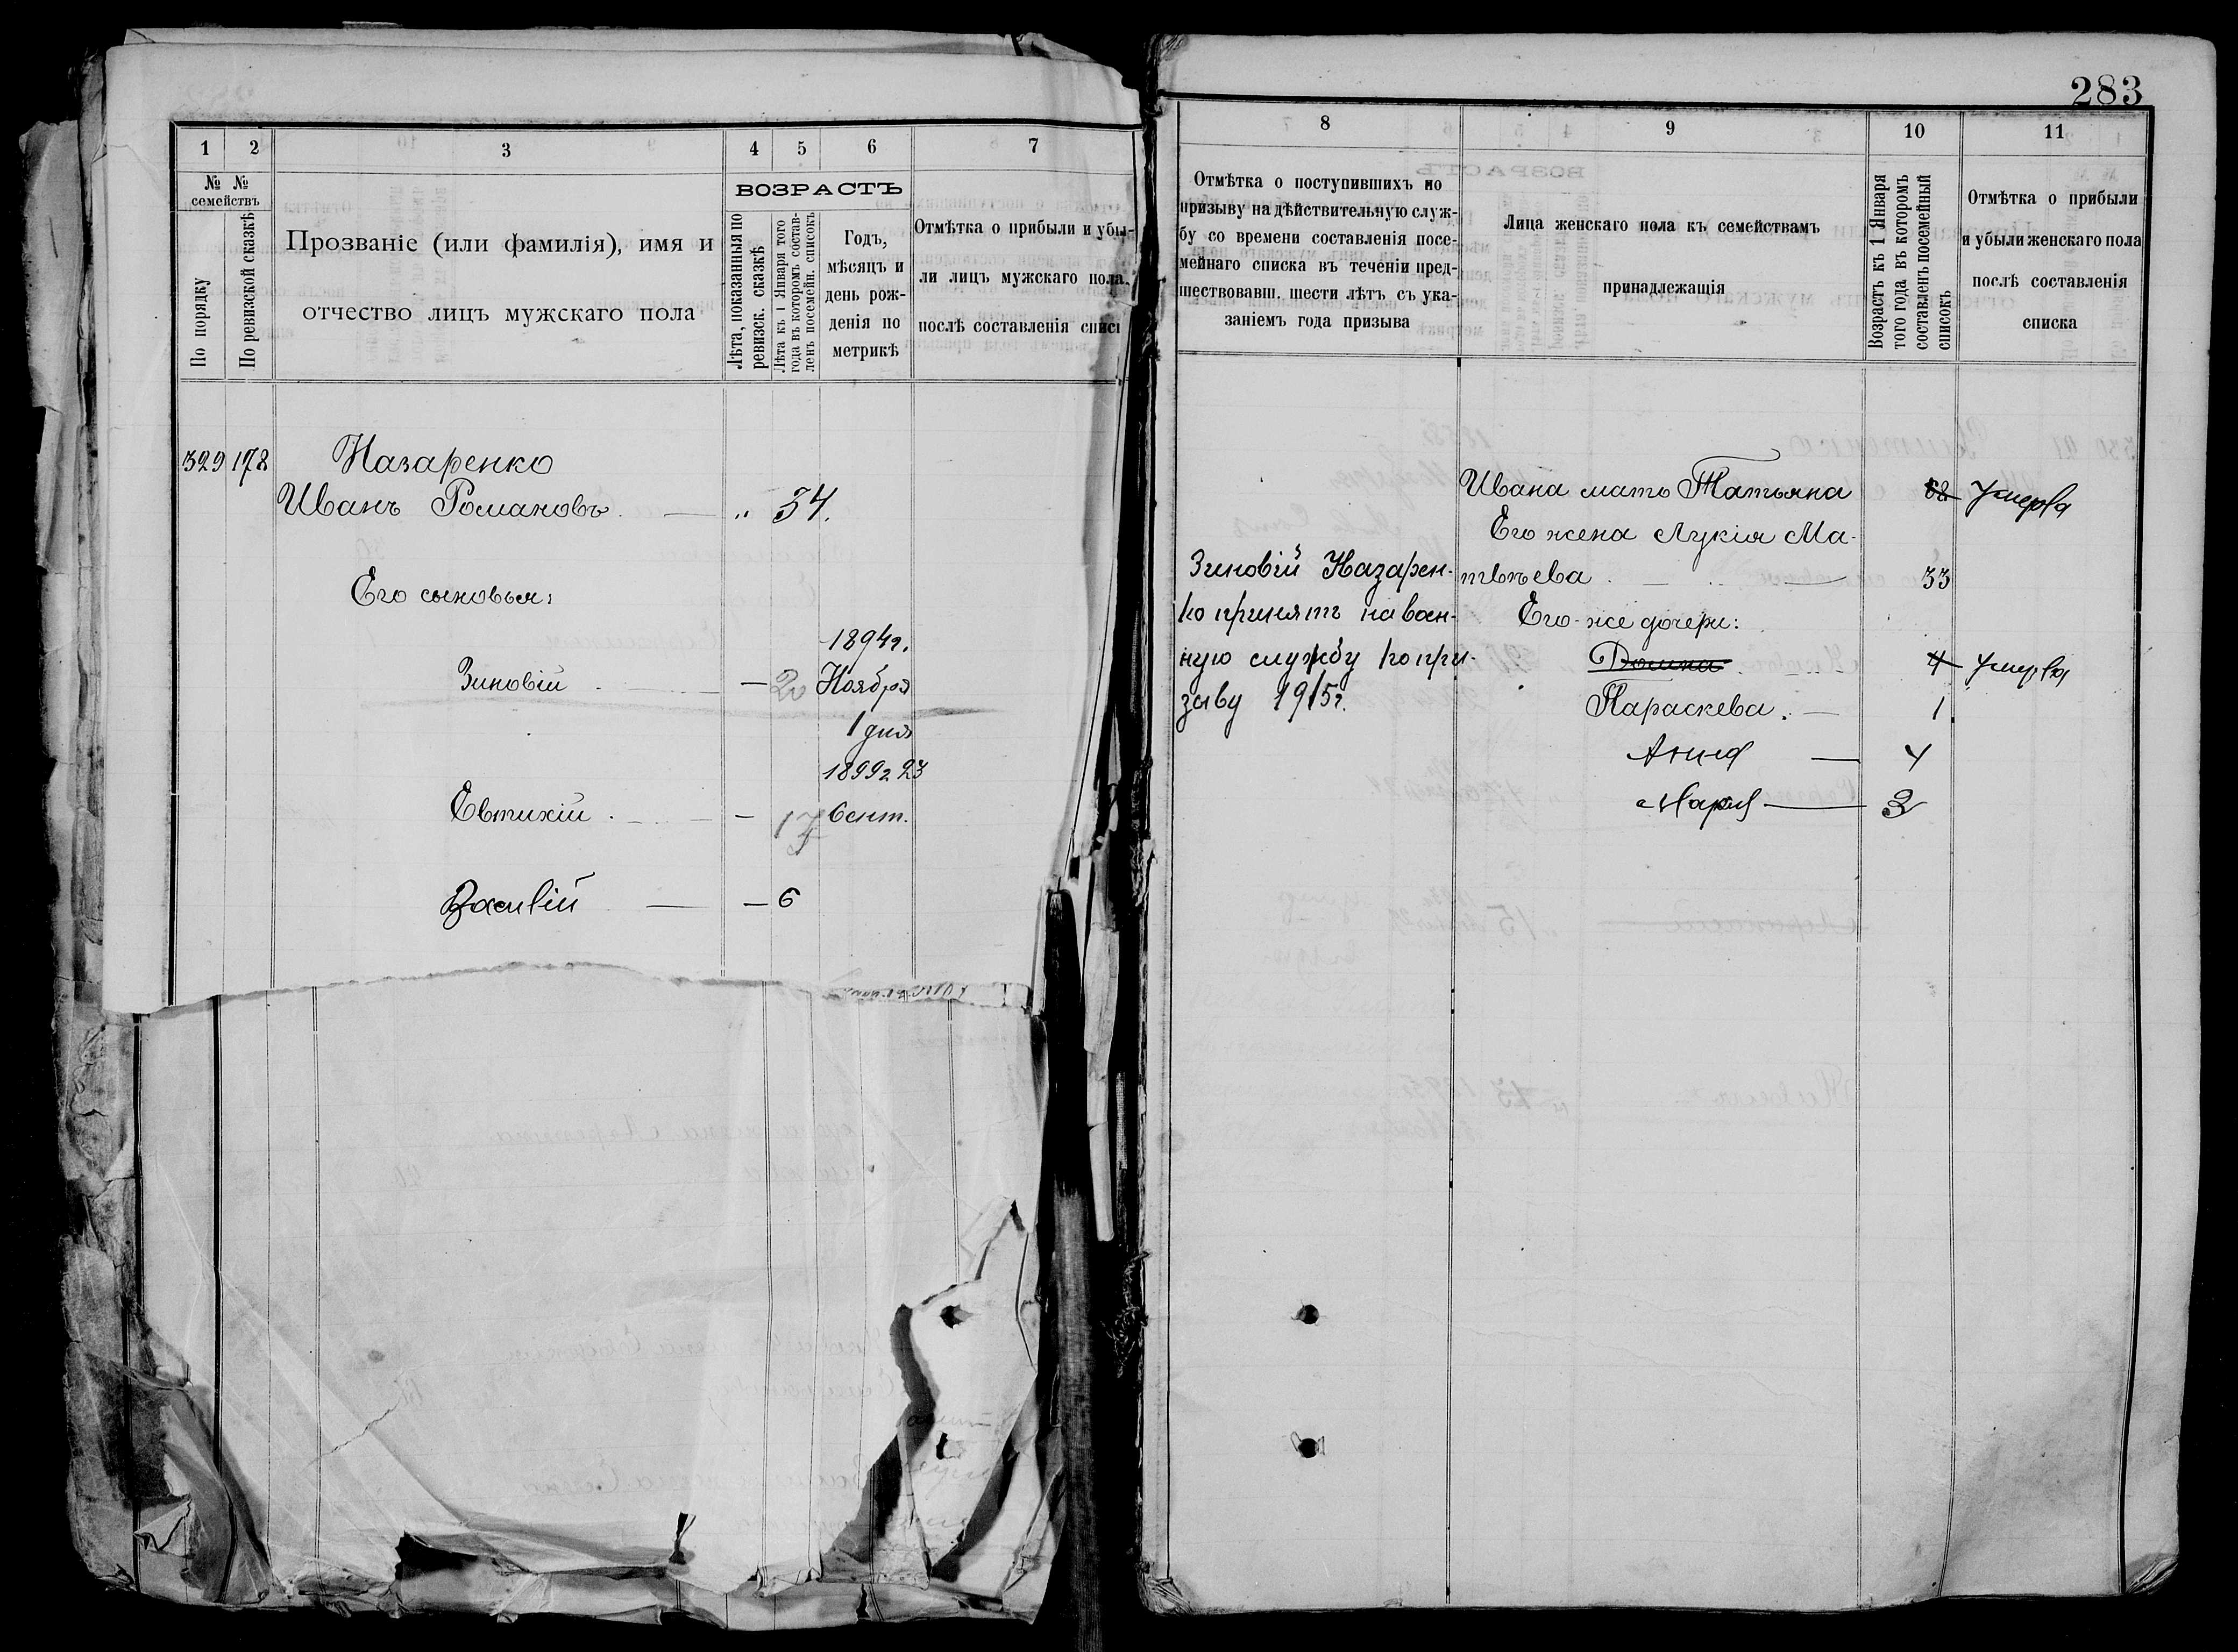 283
1 2 3 4 5 6 7
№ № семействъ
По порядку
По ревизской сказкѣ
Прозваніе (или фамилія), имя и
отчество лицъ мужскаго пола
ВОЗРАСТЪ
Лѣта, показанныя по
ревизск. сказкѣ
Лѣта къ 1 Января того
года въ которомъ состав-
ленъ посемейн. списокъ
Годъ,
мѣсяцъ и
день рож-
денія по
метрикѣ
Отмѣтка о прибыли и убы-
ли лицъ мужскаго пола
послѣ составленія списк
329 178 Назаренко
Иванъ Романовъ „ 34.
Его сыновья:
1894г.
Зиновій — 20 Ноября
1 дня
1899г 23
Евтихій — 17 Сент.
Василій — 6
8 9 10 11
Отмѣтка о поступившихъ по
призыву на дѣйствительную служ-
бу со времени составленія посе-
мейнаго списка въ теченіи пред-
шествовавш. шести лѣтъ съ ука-
заніемъ года призыва
Лица женскаго пола къ семействамъ
принадлежащія
Возрастъ къ 1 Января
того года въ которомъ
составленъ посемейный
списокъ
Отмѣтка о прибыли
и убыли женскаго пола
послѣ составленія
списка
Зиновій Назарен-
ко принятъ на воен-
ную службу по при-
зыву 1915г.
Ивана мать Татьяна 68 Умерла
Его жена Лукія Ма-
твѣева 33
Его-же дочери:
Домна 4 Умерла
Параскева. — 1
Анна — 4
Марія — 2